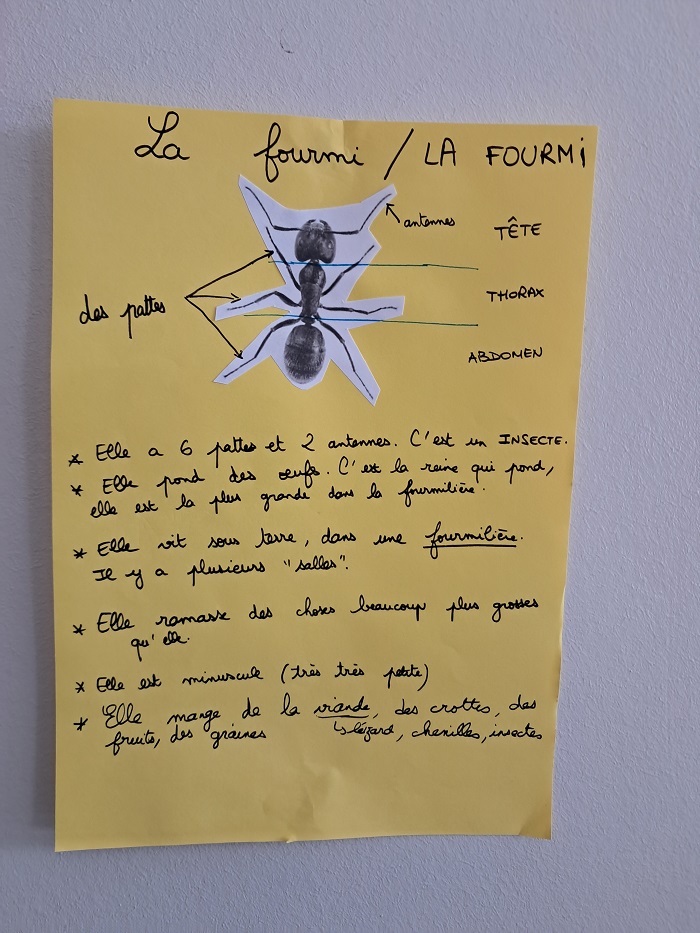 La fourmi / LA FOURMI
antennes
TÊTE
des pattes
THORAX
ABDOMEN
* Elle a 6 pattes et 2 antennes. C'est un INSECTE.
* Elle pond des œufs. C'est la reine qui pond,
elle est la plus grande dans la fourmilière.
* Elle vit sous terre, dans une fourmilière.
Il y a plusieurs "salles".
* Elle ramasse des choses beaucoup plus grosses
qu'elle.
* Elle est minuscule (très très petite)
* Elle mange de la viande, des crottes, des
fruits, des graines
↳ lézard, chenilles, insectes